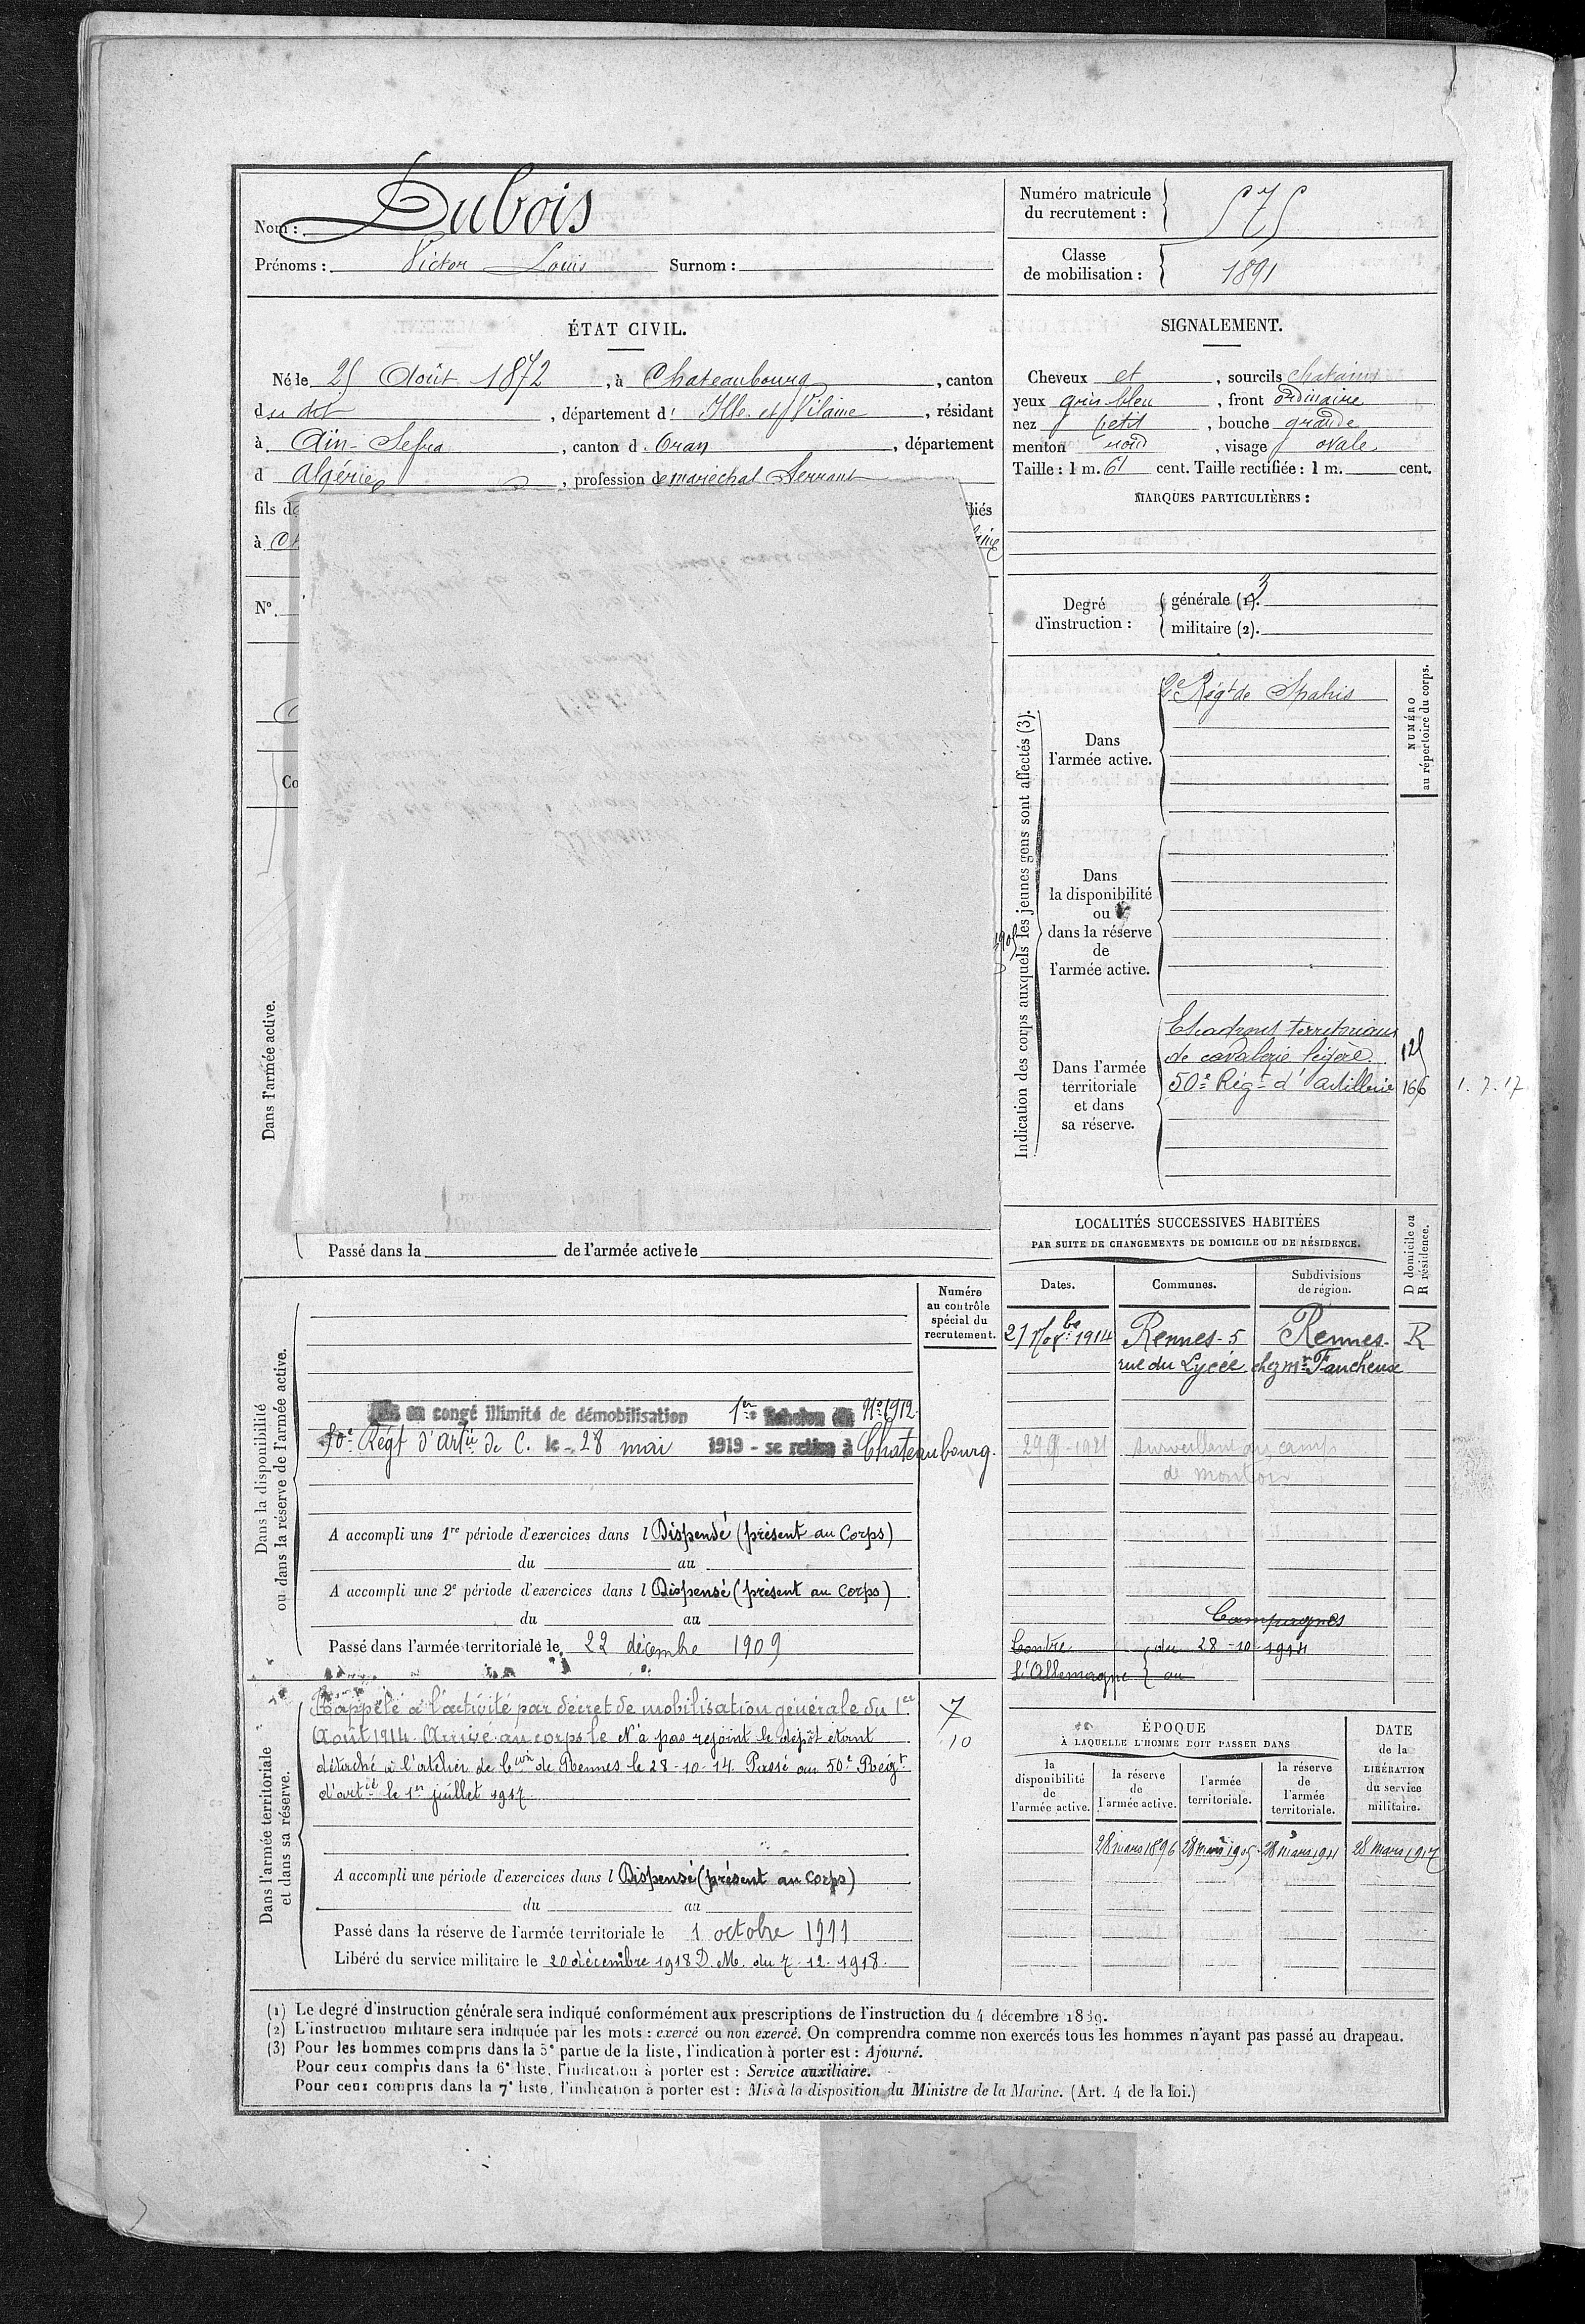 Nom : Dubois
Prénoms : Victor Louis Surnom :
Numéro matricule
du recrutement : 575
Classe
de mobilisation : 1891
ÉTAT CIVIL.
Né le 25 Août 1872, à Chateaubourg, canton
du dit, département d'Ille et Vilaine, résidant
à Aïn-Sefra, canton d. Oran, département
d Algérie, profession de maréchal Ferrant
fils de
liés
à Ch
aine
N°.
Co
Dans l'armée active.
Passé dans la de l'armée active le
SIGNALEMENT.
Cheveux et, sourcils chatains
yeux gris bleu, front ordinaire
nez petit, bouche grande
menton rond, visage ovale
Taille : 1 m. 61 cent. Taille rectifiée : 1 m. cent.
MARQUES PARTICULIÈRES :
Degré
d'instruction :
générale (1). 3
militaire (2).
Indication des corps auxquels les jeunes gens sont affectés (3).
NUMÉRO
au répertoire du corps.
Dans
l'armée active.
2e Régt de Spahis
Dans
la disponibilité
ou
dans la réserve
de
l'armée active.
Dans l'armée
territoriale
et dans
sa réserve.
Escadrons territoriaux
de cavalerie légère. 125
50e Régt d'artillerie 166 1.7.17
LOCALITÉS SUCCESSIVES HABITÉES
PAR SUITE DE CHANGEMENTS DE DOMICILE OU DE RÉSIDENCE.
D domicile ou
R résidence.
Dates. Communes. Subdivisions
de région.
21 Novbe 1914 Rennes-5 Rennes. R
rue du Lycée chez mr Faucheux
surveillant au camp
de montoir
Campagnes
Contre
l'Allemagne
du 28-10-1914
au
Dans la disponibilité
ou dans la réserve de l'armée active.
Numéro
au contrôle
spécial du
recrutement.
en congé illimité de démobilisation 1er Echelon N° 1912.
50e Régt d'Artie de C. le 28 mai 1919 - se retire à Chateaubourg.
A accompli une 1re période d'exercices dans l Dispensé (présent au Corps)
du au
A accompli une 2e période d'exercices dans l Dispensé (présent au Corps)
du au
Passé dans l'armée territoriale le 22 décembre 1909
Dans l'armée territoriale
et dans sa réserve.
Rappelé à l'activité par décret de mobilisation générale du 1er
Août 1914. Arrivé au corps le N'a pas rejoint le dépôt étant
détaché à l'atelier de Con de Rennes le 28-10-14. Passé au 50e Régt
d'artie le 1er juillet 1917.
7
10
A accompli une période d'exercices dans l Dispensé (présent au Corps)
du au
Passé dans la réserve de l'armée territoriale le 1 octobre 1911
Libéré du service militaire le 20 décembre 1918 D. M. du 7.12.1918.
ÉPOQUE
À LAQUELLE L'HOMME DOIT PASSER DANS
DATE
de la
LIBÉRATION
du service
militaire.
la
disponibilité
de
l'armée active.
la réserve
de
l'armée active.
l'armée
territoriale.
la réserve
de
l'armée
territoriale.
28 mars 1896 28 mars 1905 28 mars 1911 28 mars 1917
(1) Le degré d'instruction générale sera indiqué conformément aux prescriptions de l'instruction du 4 décembre 1889.
(2) L'instruction militaire sera indiquée par les mots : exercé ou non exercé. On comprendra comme non exercés tous les hommes n'ayant pas passé au drapeau.
(3) Pour les hommes compris dans la 5e partie de la liste, l'indication à porter est : Ajourné.
Pour ceux compris dans la 6e liste, l'indication à porter est : Service auxiliaire.
Pour ceux compris dans la 7e liste, l'indication à porter est : Mis à la disposition du Ministre de la Marine. (Art. 4 de la loi.)